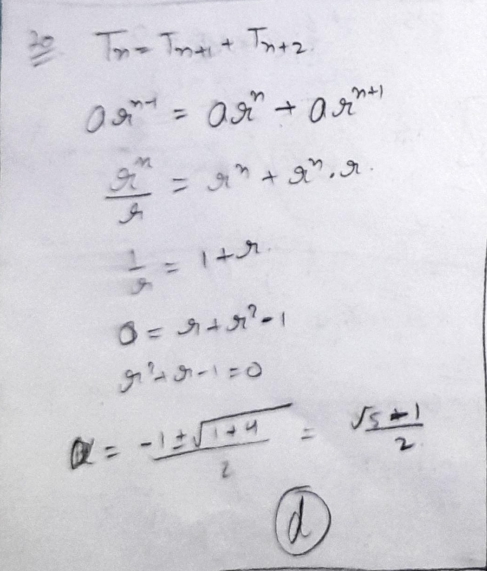 30 Tn = Tn+1 + Tn+2
ar^n-1 = ar^n + ar^n+1
r^n/r = r^n + r^n.r
1/r = 1+r
0 = r+r²-1
r²+r-1=0
r = -1±√1+4/2 = √5-1/2
d